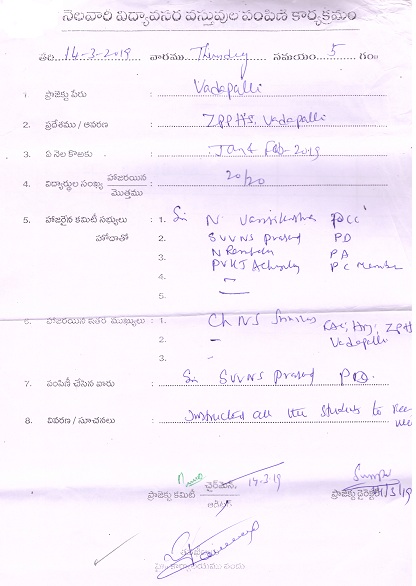 నెలవారీ విద్యావసర వస్తువుల పంపిణీ కార్యక్రమం
తేది 14-3-2019 వారము Thursday సమయం 5 గం॥
1. ప్రాజెక్టు పేరు : Vadapalli
2. ప్రదేశము / ఆవరణ : ZPPHS, Vadapalli
3. ఏ నెల కొఱకు : Jan & Feb-2019
4. విద్యార్థుల సంఖ్య హాజరయిన / మొత్తము : 20/20
5. హాజరైన కమిటీ సభ్యులు : 1. Sri N. PCC
హోదాతో 2. SVVNS Prasad PD
3. N PA
PVKJ PC Member
4. –
5. —
6. హాజరయిన ఇతర ముఖ్యులు : 1. Ch NS HM, ZPPHS
2. – Vadapalli
3. –
7. పంపిణీ చేసిన వారు : Sri SVVNS Prasad PD
8. వివరణ / సూచనలు : Instructed all the students to
ప్రాజెక్టు కమిటీ చైర్‌మెన్, 14-3-19
ప్రాజెక్టు డైరెక్టర్ 14/3/19